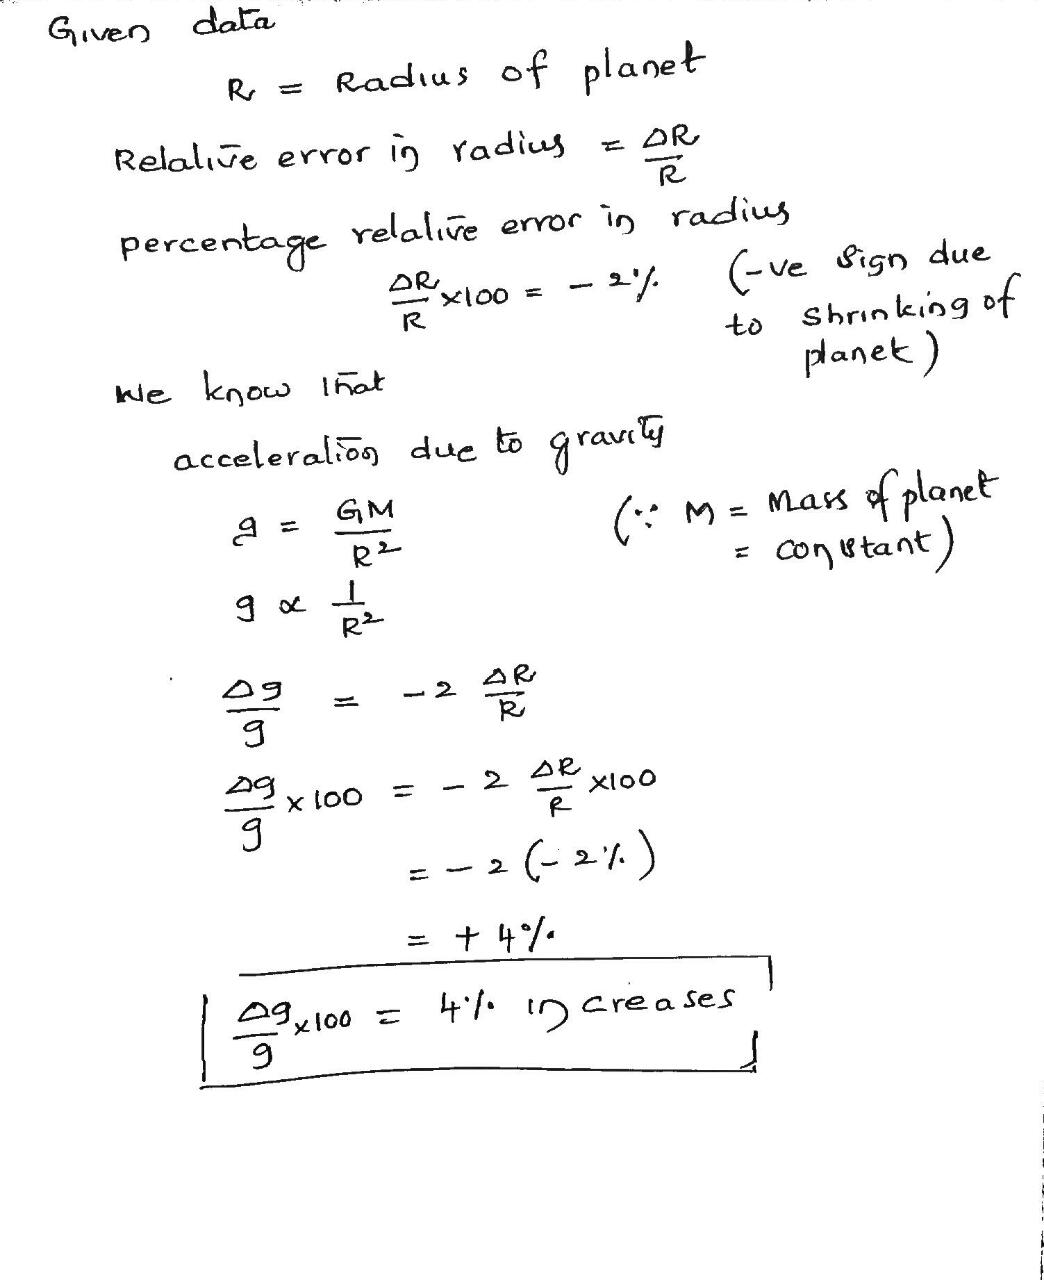 Given data
R = Radius of planet
Relative error in radius = ΔR/R
percentage relative error in radius
ΔR/R ×100 = - 2% (-ve sign due
to shrinking of
planet)
We know that
acceleration due to gravity
g = GM/R² (∵ M = Mass of planet
= constant)
g ∝ 1/R²
Δg/g = -2 ΔR/R
Δg/g × 100 = - 2 ΔR/R ×100
= - 2 (- 2%)
= + 4%
Δg/g ×100 = 4% increases